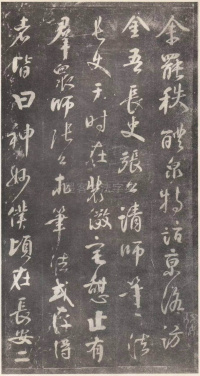 余罷秩醴泉特詣京洛訪
金吾長史張公請師筆法
長史于時在裴儆宅憩止有
羣衆師張公求筆法或存得
者皆曰神妙僕頃在長安二